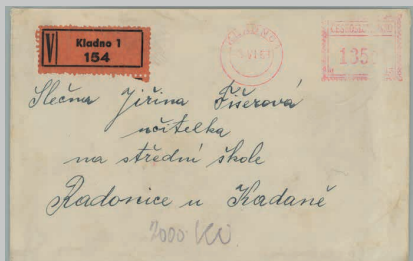 V
Kladno 1
154
135
Slečna Jiřina Fišerová
učitelka
na střední škole
Radonice u Kadaně
2000 Kč